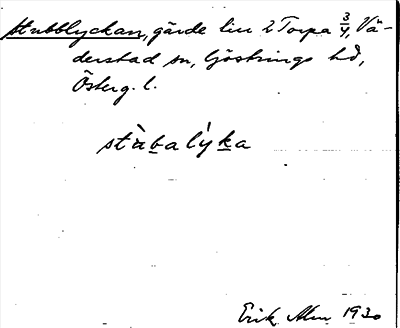 Stubblyckan, gärde tin 2 Torpa 3/4, Vä-
derstad sn, Göstrings hd,
Österg. l.
stàbalýka
Erik Alm 1930